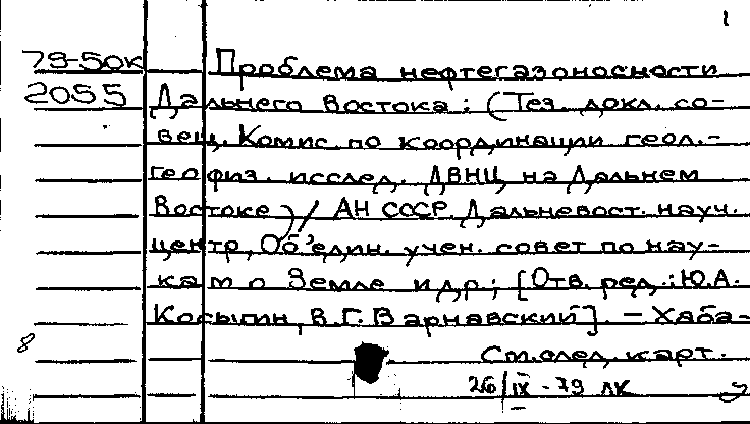 1
79-50к Проблема нефтегазоносности
2055 Дальнего Востока : (Тез. докл. со-
вещ. Комис. по координации геол.-
геофиз. исслед. ДВНЦ на Дальнем
Востоке) / АН СССР. Дальневост. науч.
центр, Объедин. учен. совет по нау-
кам о Земле и др.; [Отв. ред.: Ю.А.
Косыгин, В.Г. Варнавский]. – Хаба-
8
См. след. карт.
26/IX-79 ЛК